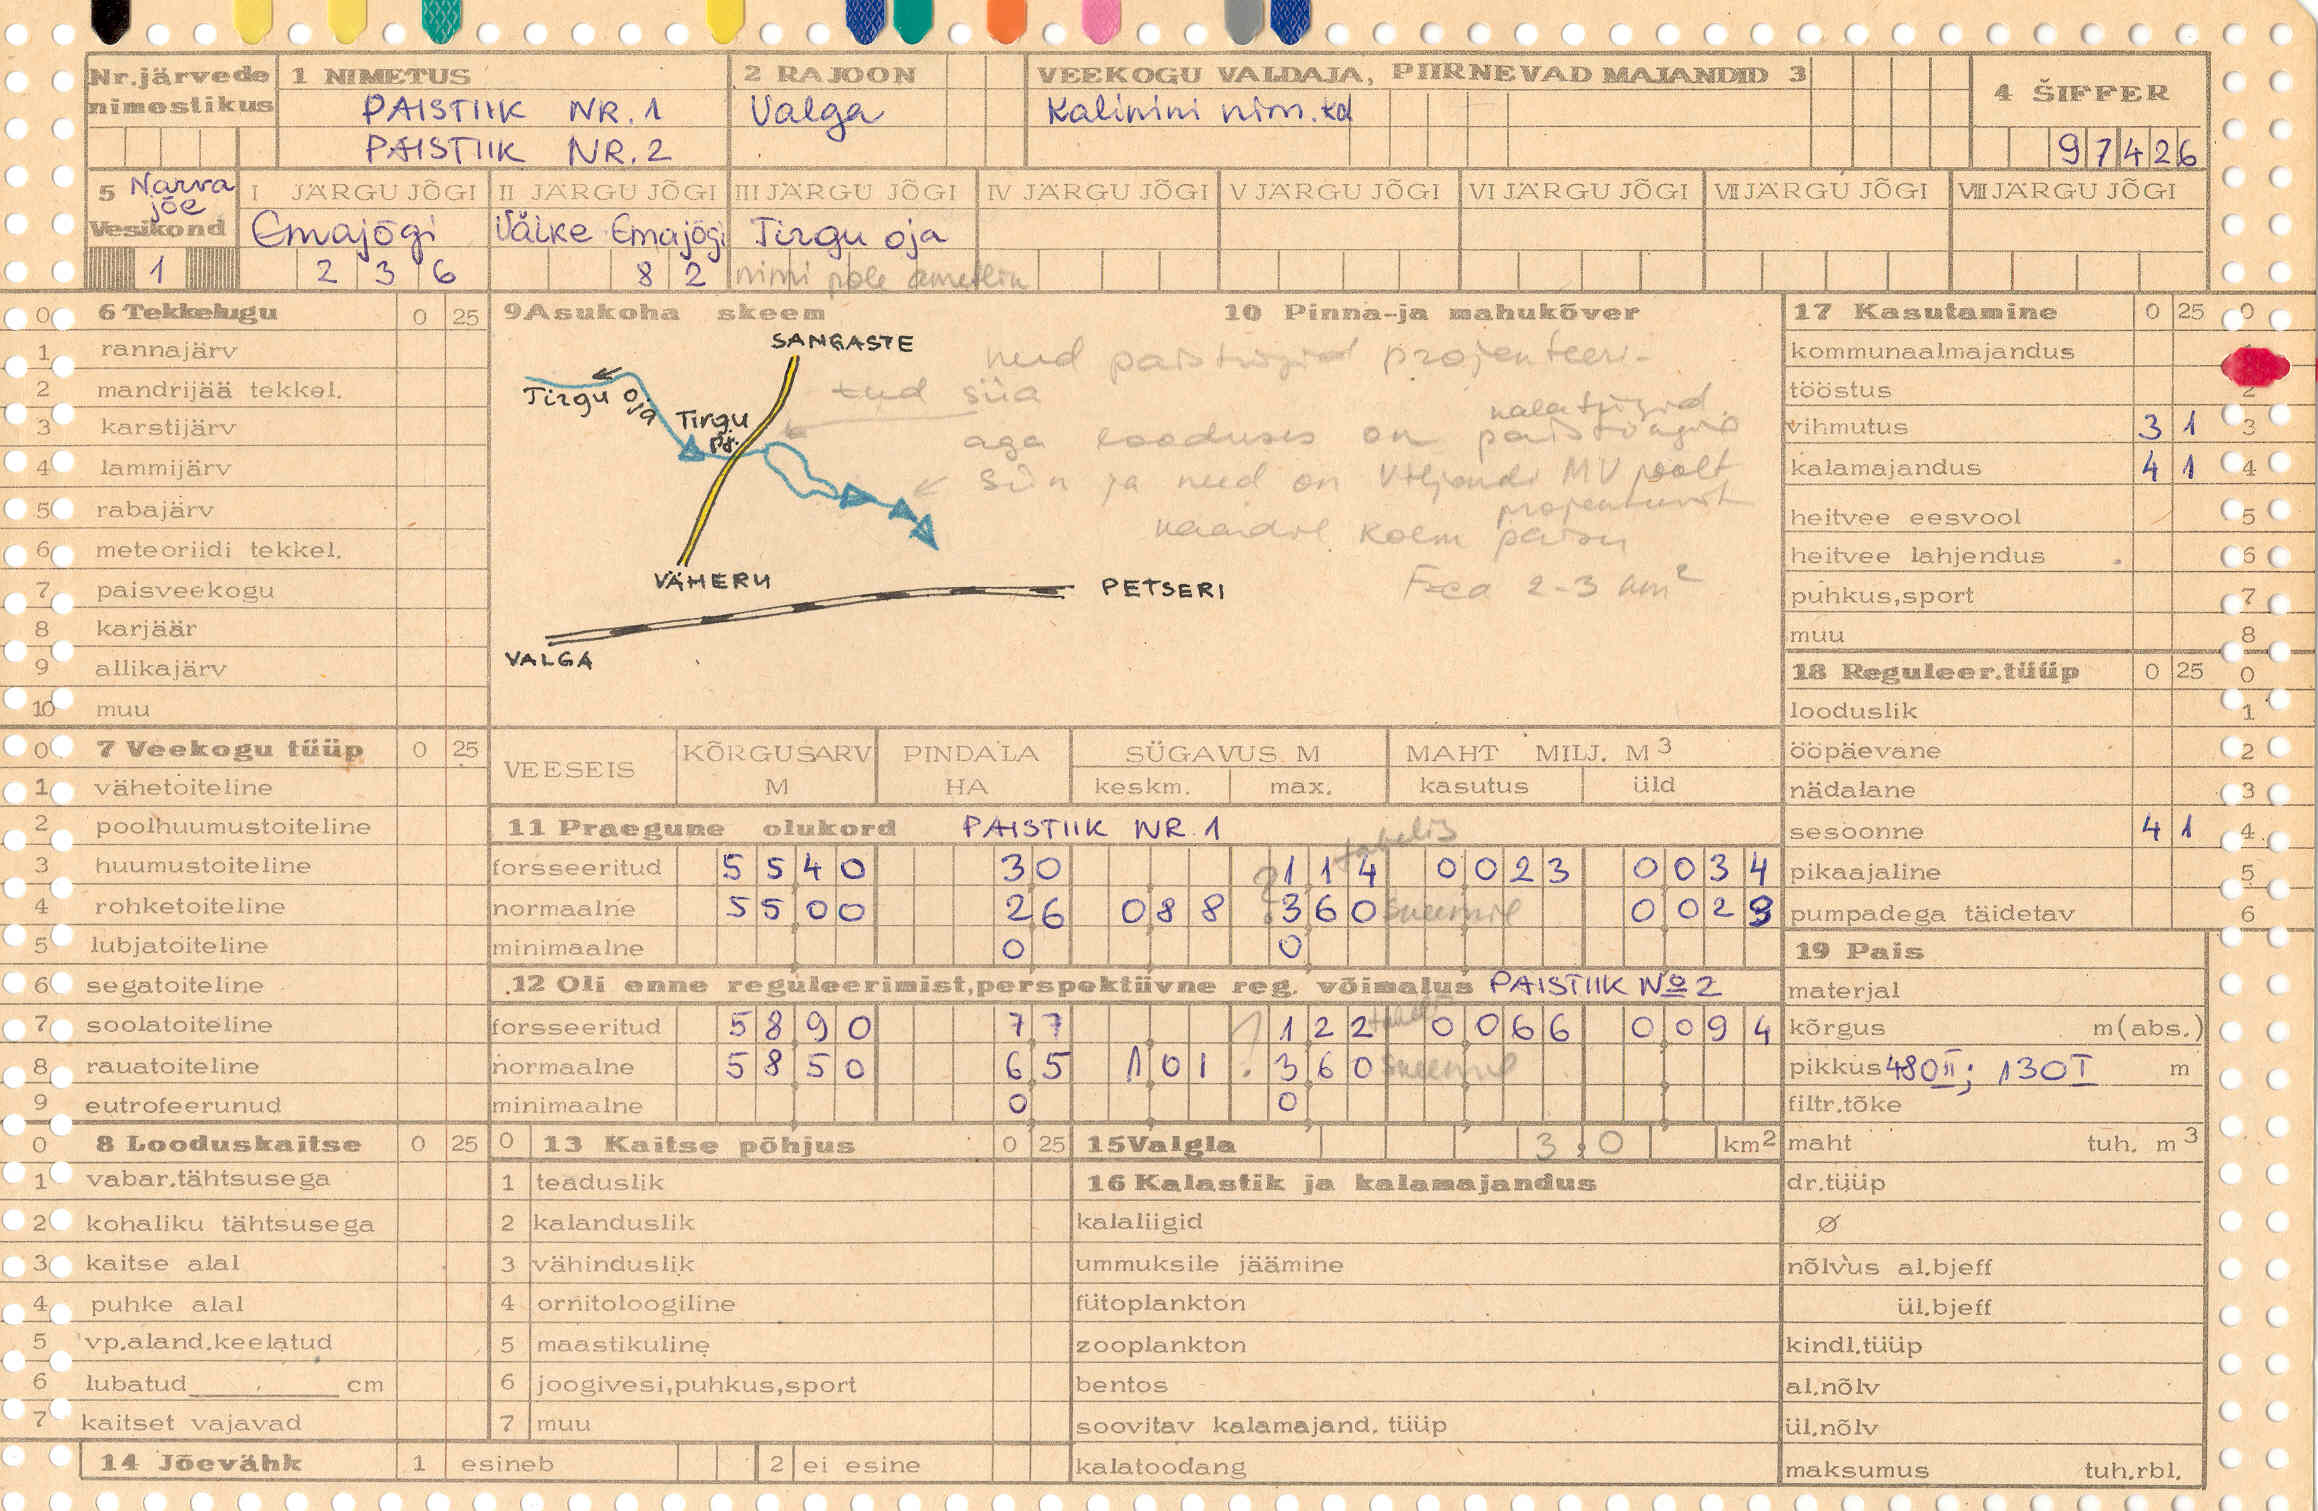 Nr. järvede nimestikus
1 NIMETUS
PAISTIIK NR. 1
PAISTIIK NR. 2
2 RAJOON
Valga
VEEKOGU VALDAJA, PIIRNEVAD MAJANDID 3
Kalinini nim. kd
4 ŠIFFER
97426
5 Narva jõe
Vesikond
1
I JÄRGU JÕGI
Emajõgi
236
II JÄRGU JÕGI
Väike Emajõgi
82
III JÄRGU JÕGI
Tirgu oja
nimi pole ametlik
IV JÄRGU JÕGI
V JÄRGU JÕGI
VI JÄRGU JÕGI
VII JÄRGU JÕGI
VIII JÄRGU JÕGI
0 6 Tekkelugu 0 25
1 rannajärv
2 mandrijää tekkel.
3 karstijärv
4 lammijärv
5 rabajärv
6 meteoriidi tekkel.
7 paisveekogu
8 karjäär
9 allikajärv
10 muu
0 7 Veekogu tüüp 0 25
1 vähetoiteline
2 poolhuumustoiteline
3 huumustoiteline
4 rohketoiteline
5 lubjatoiteline
6 segatoiteline
7 soolatoiteline
8 rauatoiteline
9 eutrofeerunud
0 8 Looduskaitse 0 25
1 vabar.tähtsusega
2 kohaliku tähtsusega
3 kaitse alal
4 puhke alal
5 vp.aland.keelatud
6 lubatud cm
7 kaitset vajavad
14 Jõevähk 1 esineb 2 ei esine
9 Asukoha skeem
10 Pinna-ja mahukõver
SANGASTE
Tirgu oja
Tirgu pj.
VÄHERU
PETSERI
VALGA
need paistiigid projekteeri-
tud siia
kalatiigid
aga looduses on paistiigid
siin ja need on Viljandi MV poolt
projekteeritud
kaardil kolm paisu
F=ca 2-3 km²
VEESEIS KÕRGUSARV M PINDALA HA SÜGAVUS M keskm. max. MAHT MILJ. M³ kasutus üld
11 Praegune olukord PAISTIIK NR. 1
tabelis
forsseeritud 5540 30 114 0023 0034
normaalne 5500 26 088 ? 360 skeemil 0029
minimaalne 0 0
12 Oli enne reguleerimist,perspektiivne reg. võimalus PAISTIIK No 2
forsseeritud 5890 77 122 0066 0094
normaalne 5850 65 101 ? 360 skeemil
minimaalne 0 0
0 13 Kaitse põhjus 0 25
1 teaduslik
2 kalanduslik
3 vähinduslik
4 ornitoloogiline
5 maastikuline
6 joogivesi,puhkus,sport
7 muu
15 Valgla 3,0 km²
16 Kalastik ja kalamajandus
kalaliigid
ummuksile jäämine
fütoplankton
zooplankton
bentos
soovitav kalamajand. tüüp
kalatoodang
17 Kasutamine 0 25 0
kommunaalmajandus
tööstus 2
vihmutus 31 3
kalamajandus 41 4
heitvee eesvool 5
heitvee lahjendus 6
puhkus,sport 7
muu 8
18 Reguleer.tüüp 0 25 0
looduslik 1
ööpäevane 2
nädalane 3
sesoonne 41 4
pikaajaline 5
pumpadega täidetav 6
19 Pais
materjal
kõrgus m(abs.)
pikkus 480 II; 130 I m
filtr.tõke
maht tuh. m³
dr.tüüp
Ø
nõlvus al.bjeff
ül.bjeff
kindl.tüüp
al.nõlv
ül.nõlv
maksumus tuh.rbl.